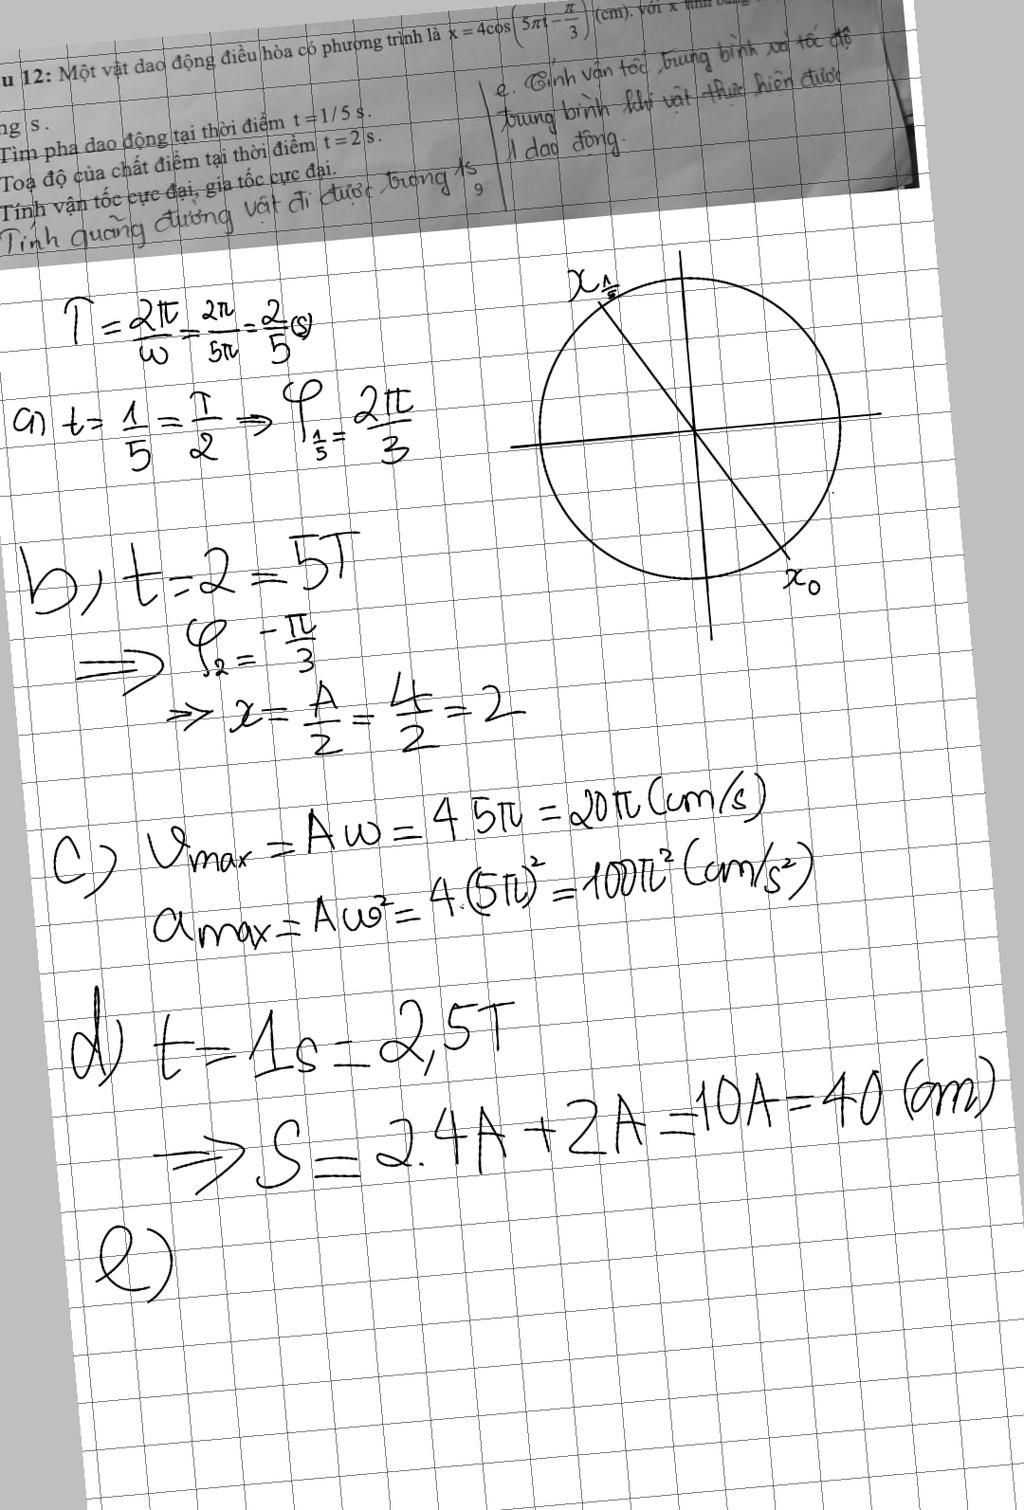 u 12: Một vật dao động điều hòa có phương trình là x = 4cos(5πt − π/3) (cm). Với x tính
ng s.
Tìm pha dao động tại thời điểm t = 1/5 s.
Toạ độ của chất điểm tại thời điểm t = 2 s.
Tính vận tốc cực đại, gia tốc cực đại.
Tính quãng đường vật đi được trong 1s
e. Tính vận tốc trung bình và tốc độ
trung bình khi vật thực hiện được
1 dao động.
T = 2π/ω = 2π/5π = 2/5 (s)
a) t = 1/5 = T/2 ⇒ φ_1/5 = 2π/3
x_1/5
x₀
b, t = 2 = 5T
⇒ φ₂ = -π/3
⇒ x = A/2 = 4/2 = 2
c) vmax = Aω = 4 5π = 20π (cm/s)
amax = Aω² = 4.(5π)² = 100π² (cm/s²)
d) t = 1s = 2,5T
⇒ S = 2.4A + 2A = 10A = 40 (cm)
e)